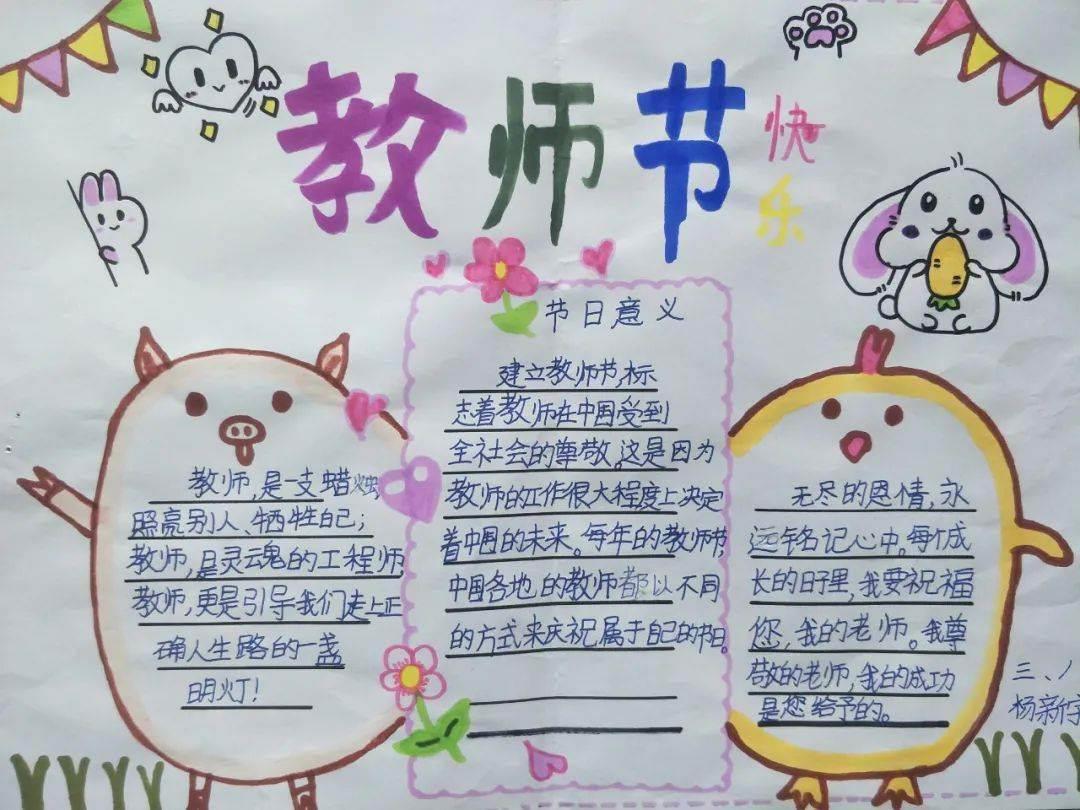 教师节
快
乐
节日意义
建立教师节,标
志着教师在中国受到
全社会的尊敬。这是因为
教师的工作很大程度上决定
着中国的未来。每年的教师节,
中国各地,的教师都以不同
的方式来庆祝属于自己的节日。
教师,是一支蜡烛
照亮别人、牺牲自己;
教师,是灵魂的工程师,
教师,更是引导我们走上正
确人生路的一盏
明灯!
无尽的恩情,永
远铭记心中。每个成
长的日子里,我要祝福
您,我的老师。我尊
敬的老师,我的成功
是您给予的。
三、
杨新宇